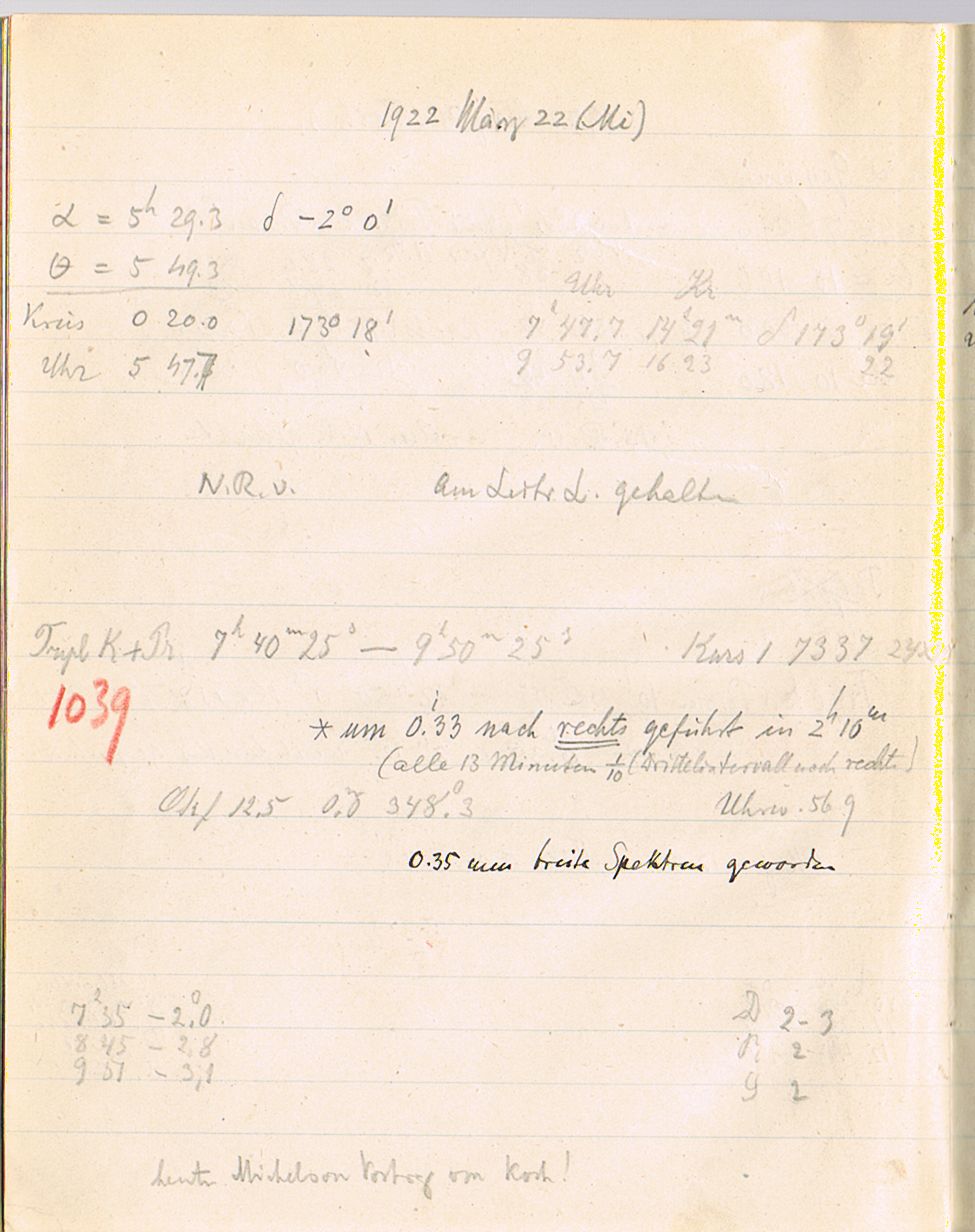 1922 März 22 (Mi)
α = 5h 29.3 δ -2° 0'
θ = 5 49.3
Uhr Kr
Kreis 0 20.0 173° 18' 7h 47.7 14h 21m δ 173° 19'
Uhr 5 47.7 9 53.7 16 23 22
N.R.v. am Leitr L. gehalten
Tripl K + Pr 7h 40m 25s — 9h 50m 25s Kurs 1 7337
1039
* um 0.'33 nach rechts geführt in 2h 10m
(alle 13 Minuten 1/10 (Drittelintervall nach rechts)
Ok/ 12.5 348.°3 Uhrw. 56 g
0.35 mm breite Spektren geworden
7h 35 -2.°0 D 2-3
8 45 - 2,8 R 2
9 51 - 3,1 G 2
heute Michelson Vortrag von Koch!